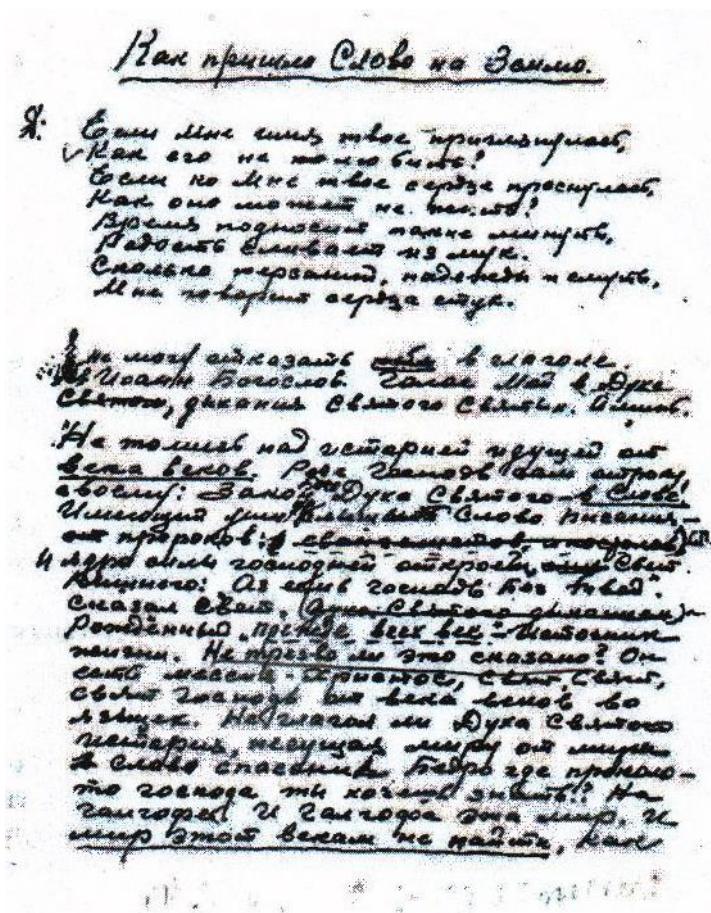 Как пришло Слово на Землю.
Я: Если Мне имя твое приглянулось,
Как его не полюбить!
Если ко Мне твое сердце проснулось,
Как оно может не
Время подносит минуть,
Радость сливает из мук.
Сколько терзаний, надежды и смуть,
Мне говорит сердца стук.
Я не могу отказать тебе в глаголе.
Иоанн Богослов. Глас Мой в Духе
Святом, дыхания Святого Святых. Аминь.
"Не томись над историей идущей от
века веков. Рече Господь
своему: Закон Духа Святого - в Слове,
Имеющий уши Слово писания -
от пророков:
и ядро силы господней откроет, Свет
Вышнего: Аз есмь господь Бог твой".
сказал Свет. Духа Святого дыханием -
Рожденный "прежде всех век" - Источник
жизни. Не трезво ли это сказано? Он
есть мессия - Христос, Свят, Свят,
свят Господь от века веков во
языцех. Не глагол ли Духа Святого
история, несущая миру от
в слово спасения. где
то господа ты хочешь знать!? На
голгофе! И Голгофа эта мир. И
мир этот векам не найти, как